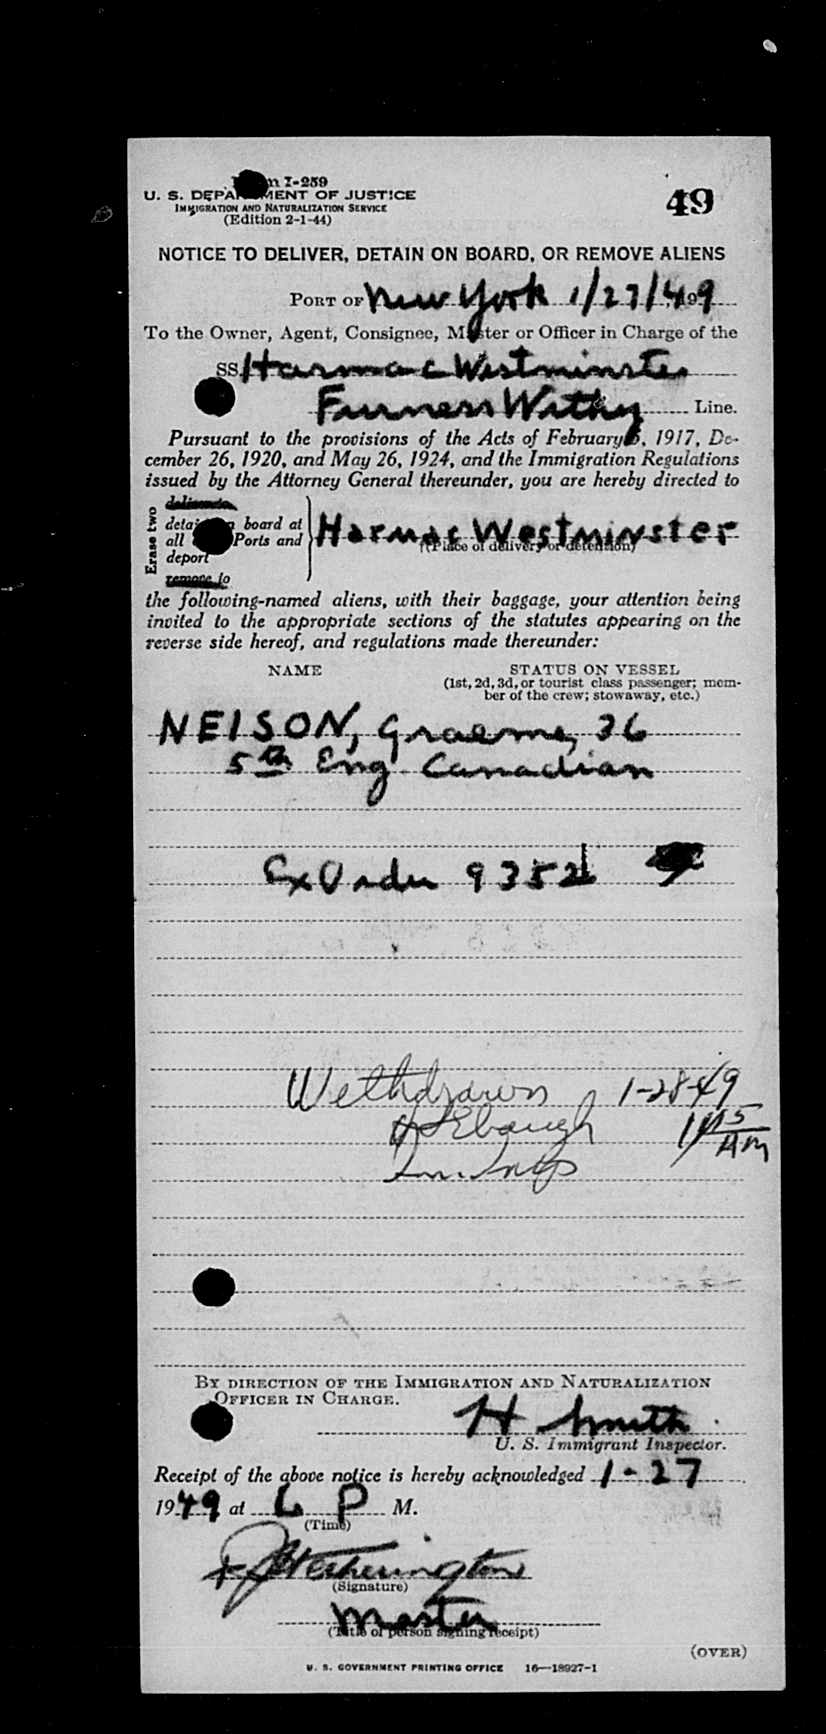 Form I-259
U. S. DEPARTMENT OF JUSTICE
IMMIGRATION AND NATURALIZATION SERVICE
(Edition 2-1-44)
49
NOTICE TO DELIVER, DETAIN ON BOARD, OR REMOVE ALIENS
PORT OF New York 1/27/49
To the Owner, Agent, Consignee, Master or Officer in Charge of the
SS. Harmac Westminster
Furness Withy Line.
Pursuant to the provisions of the Acts of February 5, 1917, De-
cember 26, 1920, and May 26, 1924, and the Immigration Regulations
issued by the Attorney General thereunder, you are hereby directed to
Erase two
deliver to
detain on board at
all Ports and
deport
remove to
Harmac Westminster
(Place of delivery or detention)
the following-named aliens, with their baggage, your attention being
invited to the appropriate sections of the statutes appearing on the
reverse side hereof, and regulations made thereunder:
NAME STATUS ON VESSEL
(1st, 2d, 3d, or tourist class passenger; mem-
ber of the crew; stowaway, etc.)
NEISON, Graeme, 36
5th Eng. Canadian
Ex Order 9352
Wethdrawn 1-28-49
Ebaugh 1145 AM
Im. Insp
BY DIRECTION OF THE IMMIGRATION AND NATURALIZATION
OFFICER IN CHARGE.
H Smith
U. S. Immigrant Inspector.
Receipt of the above notice is hereby acknowledged 1-27
1949 at 6 P M.
(Time)
Wetherington
(Signature)
Master
(Title of person signing receipt)
(OVER)
U. S. GOVERNMENT PRINTING OFFICE 16—18927-1